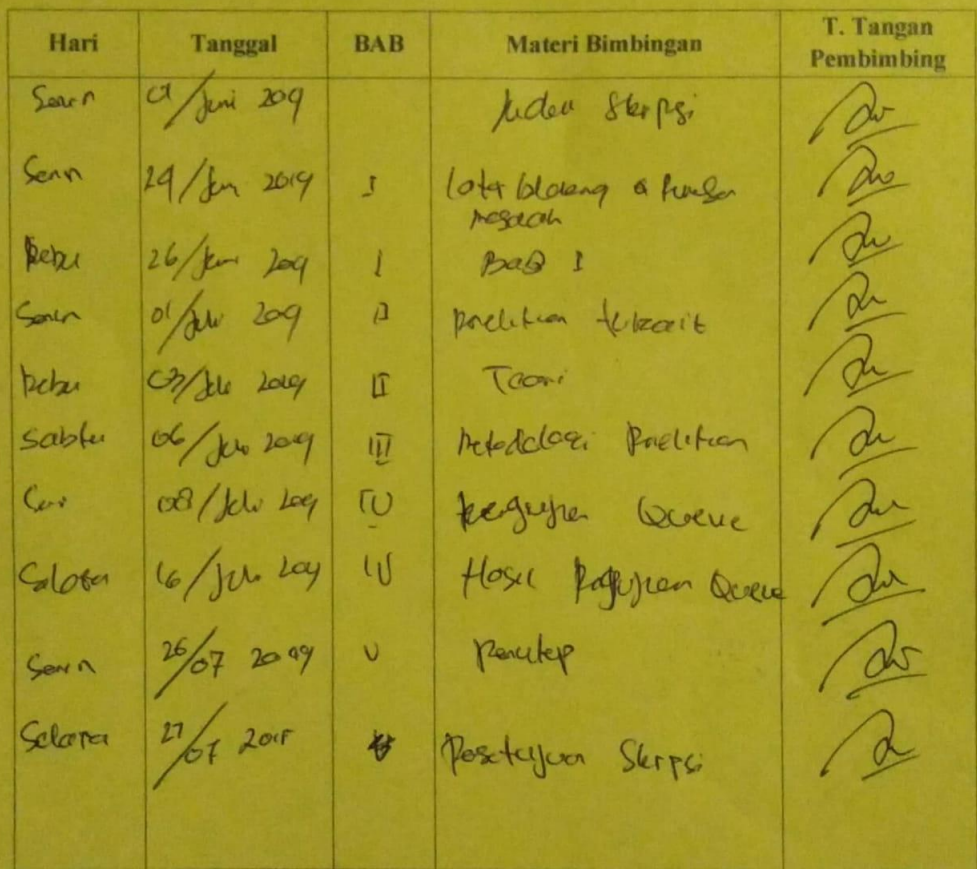 Hari Tanggal BAB Materi Bimbingan T. Tangan Pembimbing
Senin 01/Juni 2019 Judul Skripsi
Senin 24/Juni 2019 I Latar belakang & rumusan
masalah
Rebu 26/Juni 2019 I BAB I
Senin 01/Juli 2019 II Penelitian terkait
Rebu 03/Juli 2019 II Teori
Sabtu 06/Juli 2019 III Metodologi Penelitian
08/Juli 2019 IV Pengujian Queue
Selasa 16/Juli 2019 IV Hasil Pengujian Queue
Senin 26/07 2019 V Penutup
Selasa 27/07 Persetujuan Skripsi